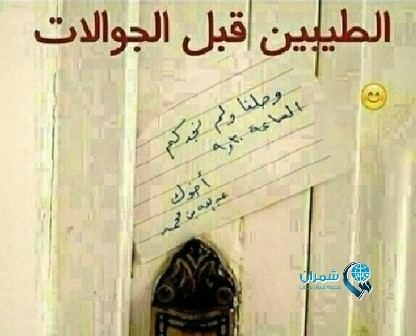 الطيبين قبل الجوالات
وصلنا ولم نجدكم
الساعة ٩٫٣٠
أخوك
عبدالله بن محمد
شمران